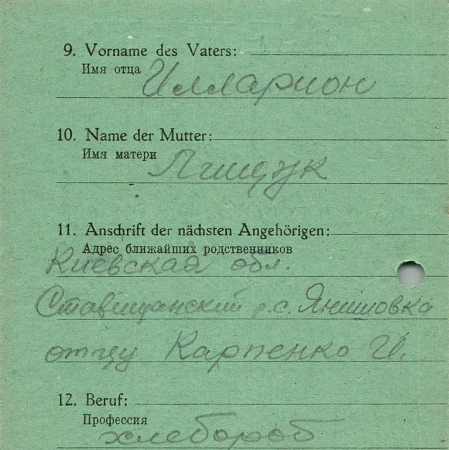 9. Vorname des Vaters:
Имя отца
Илларион
10. Name der Mutter:
Имя матери
11. Anschrift der nächsten Angehörigen:
Адрес ближайших родственников
Киевская обл.
Ставищанский р. с. Янишовка
отцу Карпенко И.
12. Beruf:
Профессия
хлебороб